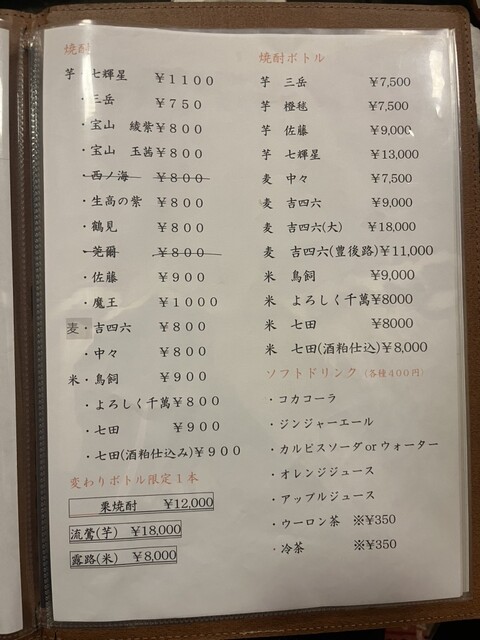 焼酎
芋・七輝星 ￥１１００
・三岳 ￥７５０
・宝山 綾紫￥８００
・宝山 玉茜￥８００
・西ノ海 ￥８００
・生高の紫 ￥８００
・鶴見 ￥８００
・莞爾 ￥８００
・佐藤 ￥９００
・魔王 ￥１０００
麦・吉四六 ￥８００
・中々 ￥８００
米・鳥飼 ￥９００
・よろしく千萬￥８００
・七田 ￥９００
・七田(酒粕仕込み)￥９００
変わりボトル限定１本
栗焼酎 ¥12,000
流鶯(芋) ¥18,000
露路(米) ¥8,000
焼酎ボトル
芋 三岳 ¥7,500
芋 橙毬 ¥7,500
芋 佐藤 ¥9,000
芋 七輝星 ¥13,000
麦 中々 ¥7,500
麦 吉四六 ¥9,000
麦 吉四六(大) ¥18,000
麦 吉四六(豊後路)¥11,000
米 鳥飼 ¥9,000
米 よろしく千萬¥8000
米 七田 ¥8000
米 七田(酒粕仕込)¥8,000
ソフトドリンク（各種４００円）
・コカコーラ
・ジンジャーエール
・カルピスソーダorウォーター
・オレンジジュース
・アップルジュース
・ウーロン茶 ※¥350
・冷茶 ※¥350